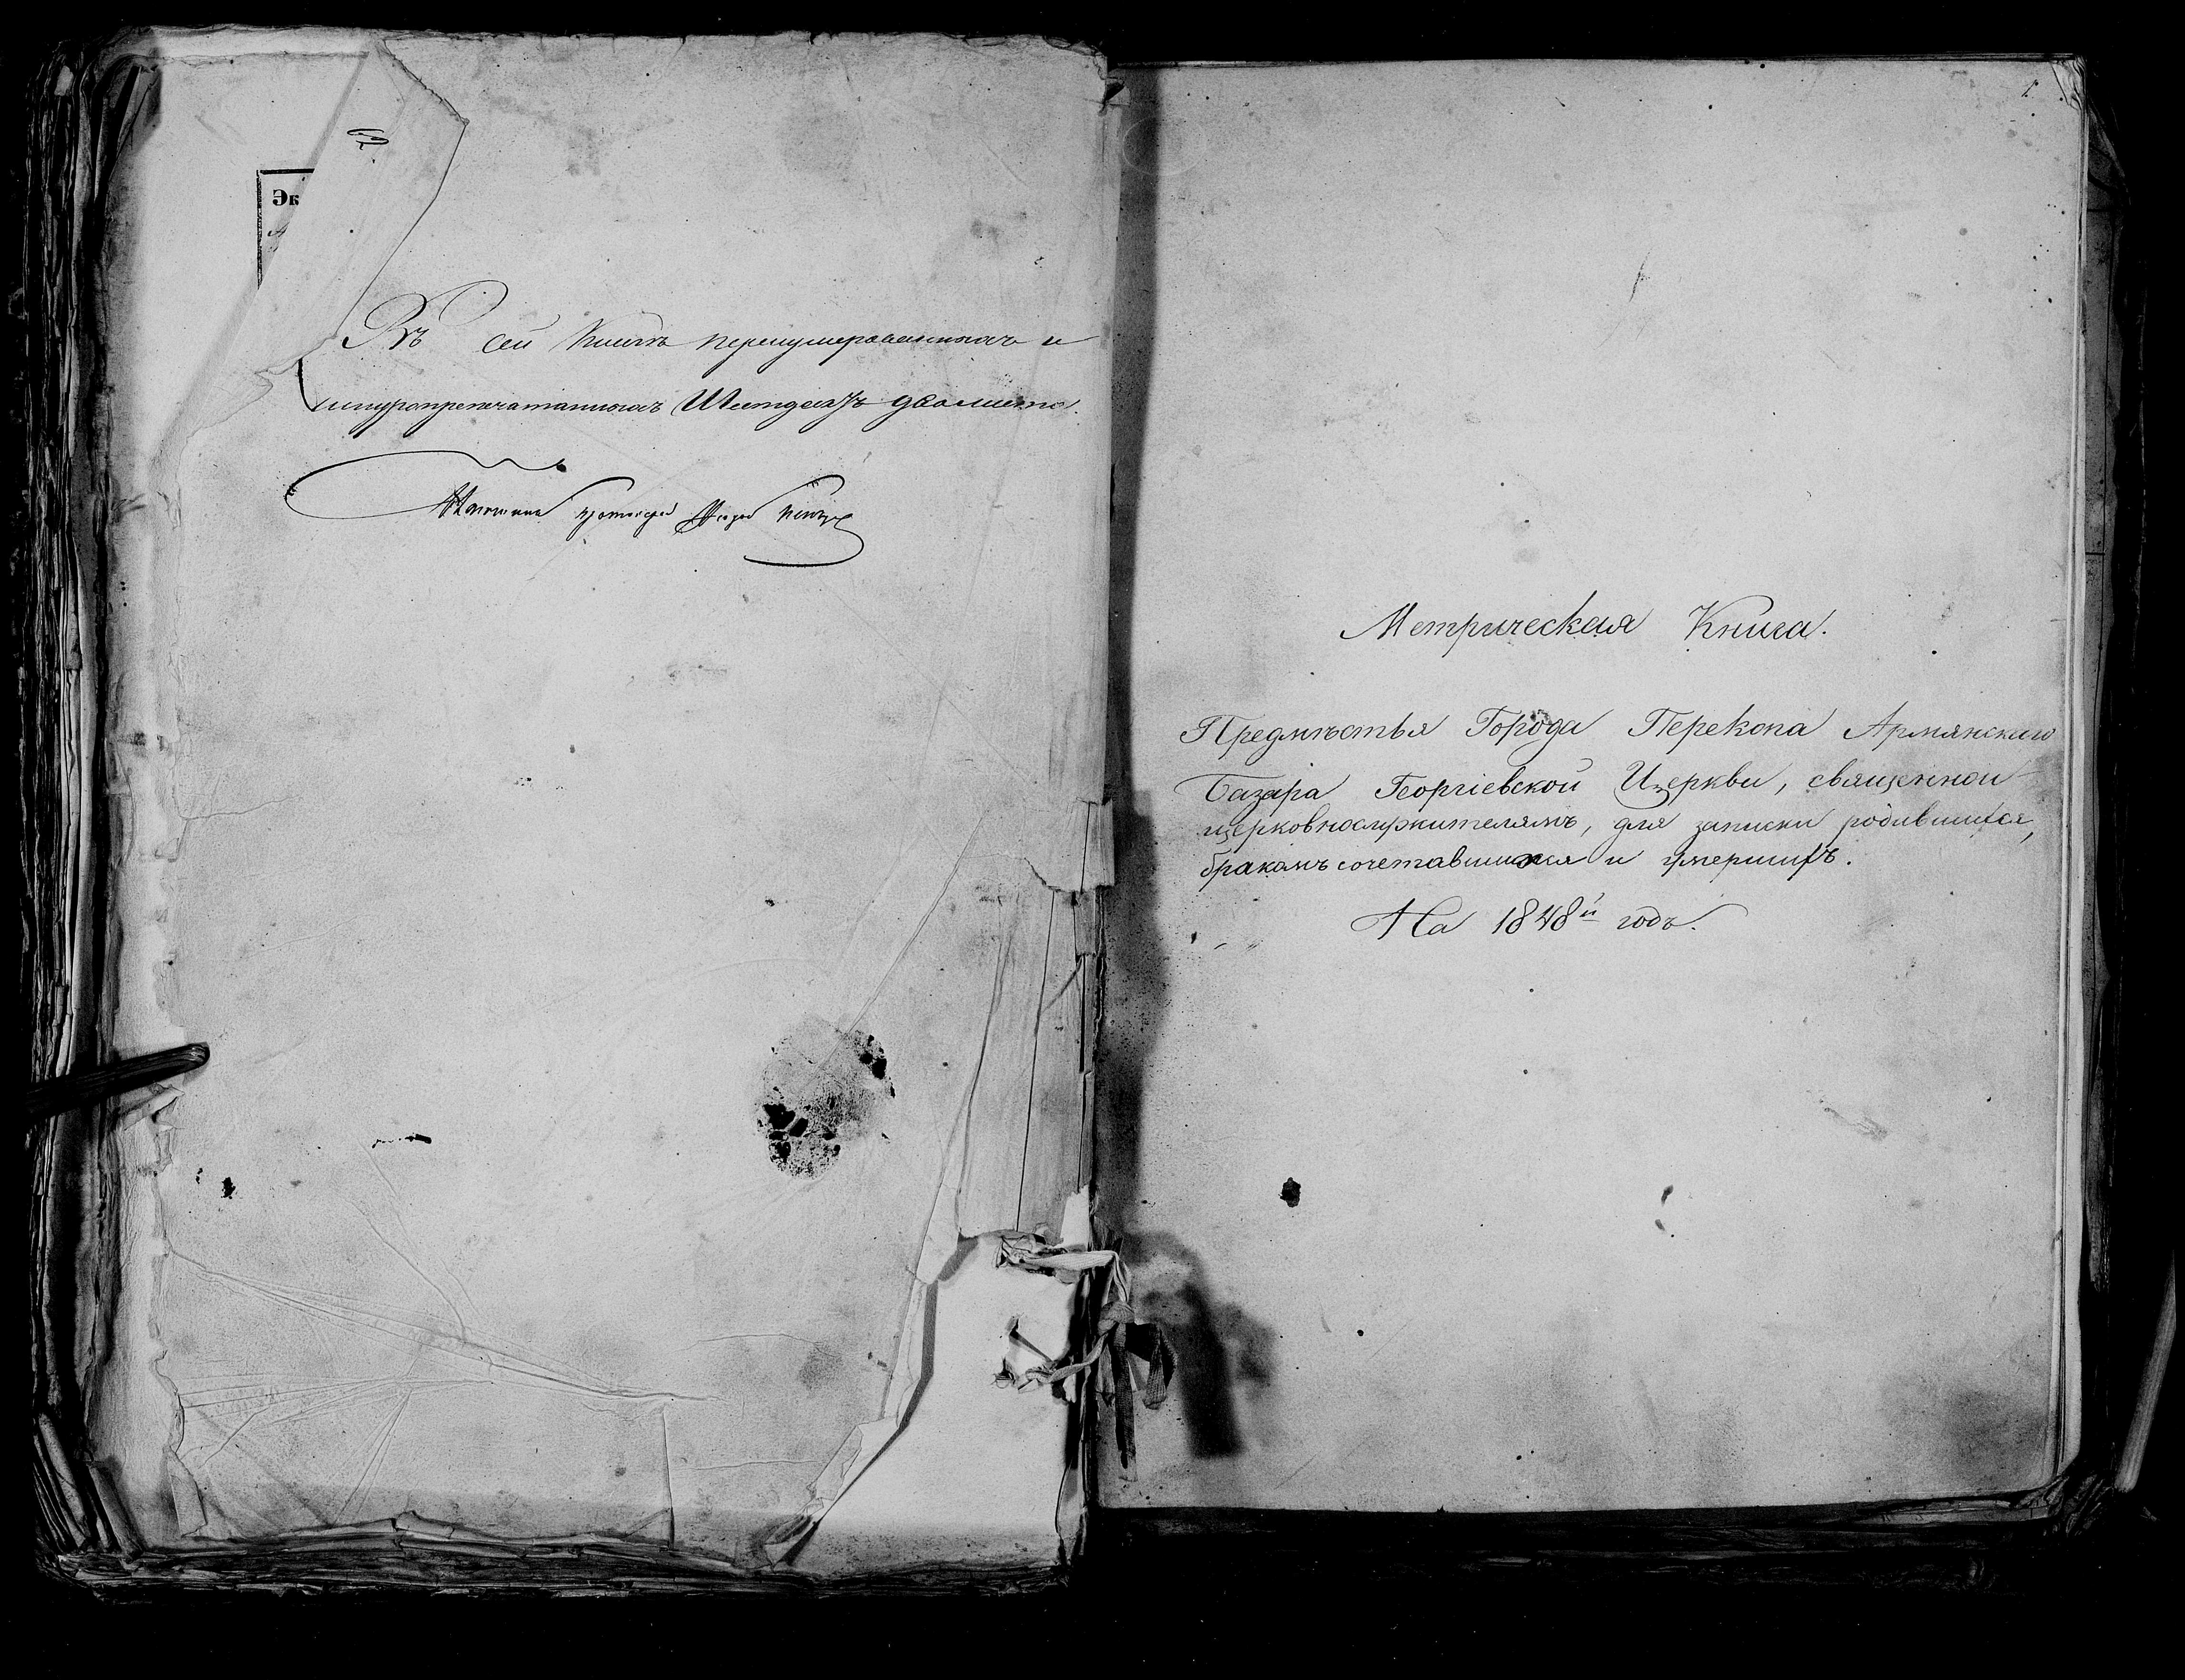 Эк
Въ сей книгѣ перенумерованныхъ и
шнуропрепечатанныхъ Шестдесятъ два листа.
протоіерей
1.
Метрическая Книга.
Предмѣстья Города Перекопа Армянскаго
Базара Георгіевской Церкви, священнои
церковнослужителямъ, для записки родившихся,
бракомъ сочетавшихся и умершихъ.
На 1848й годъ.